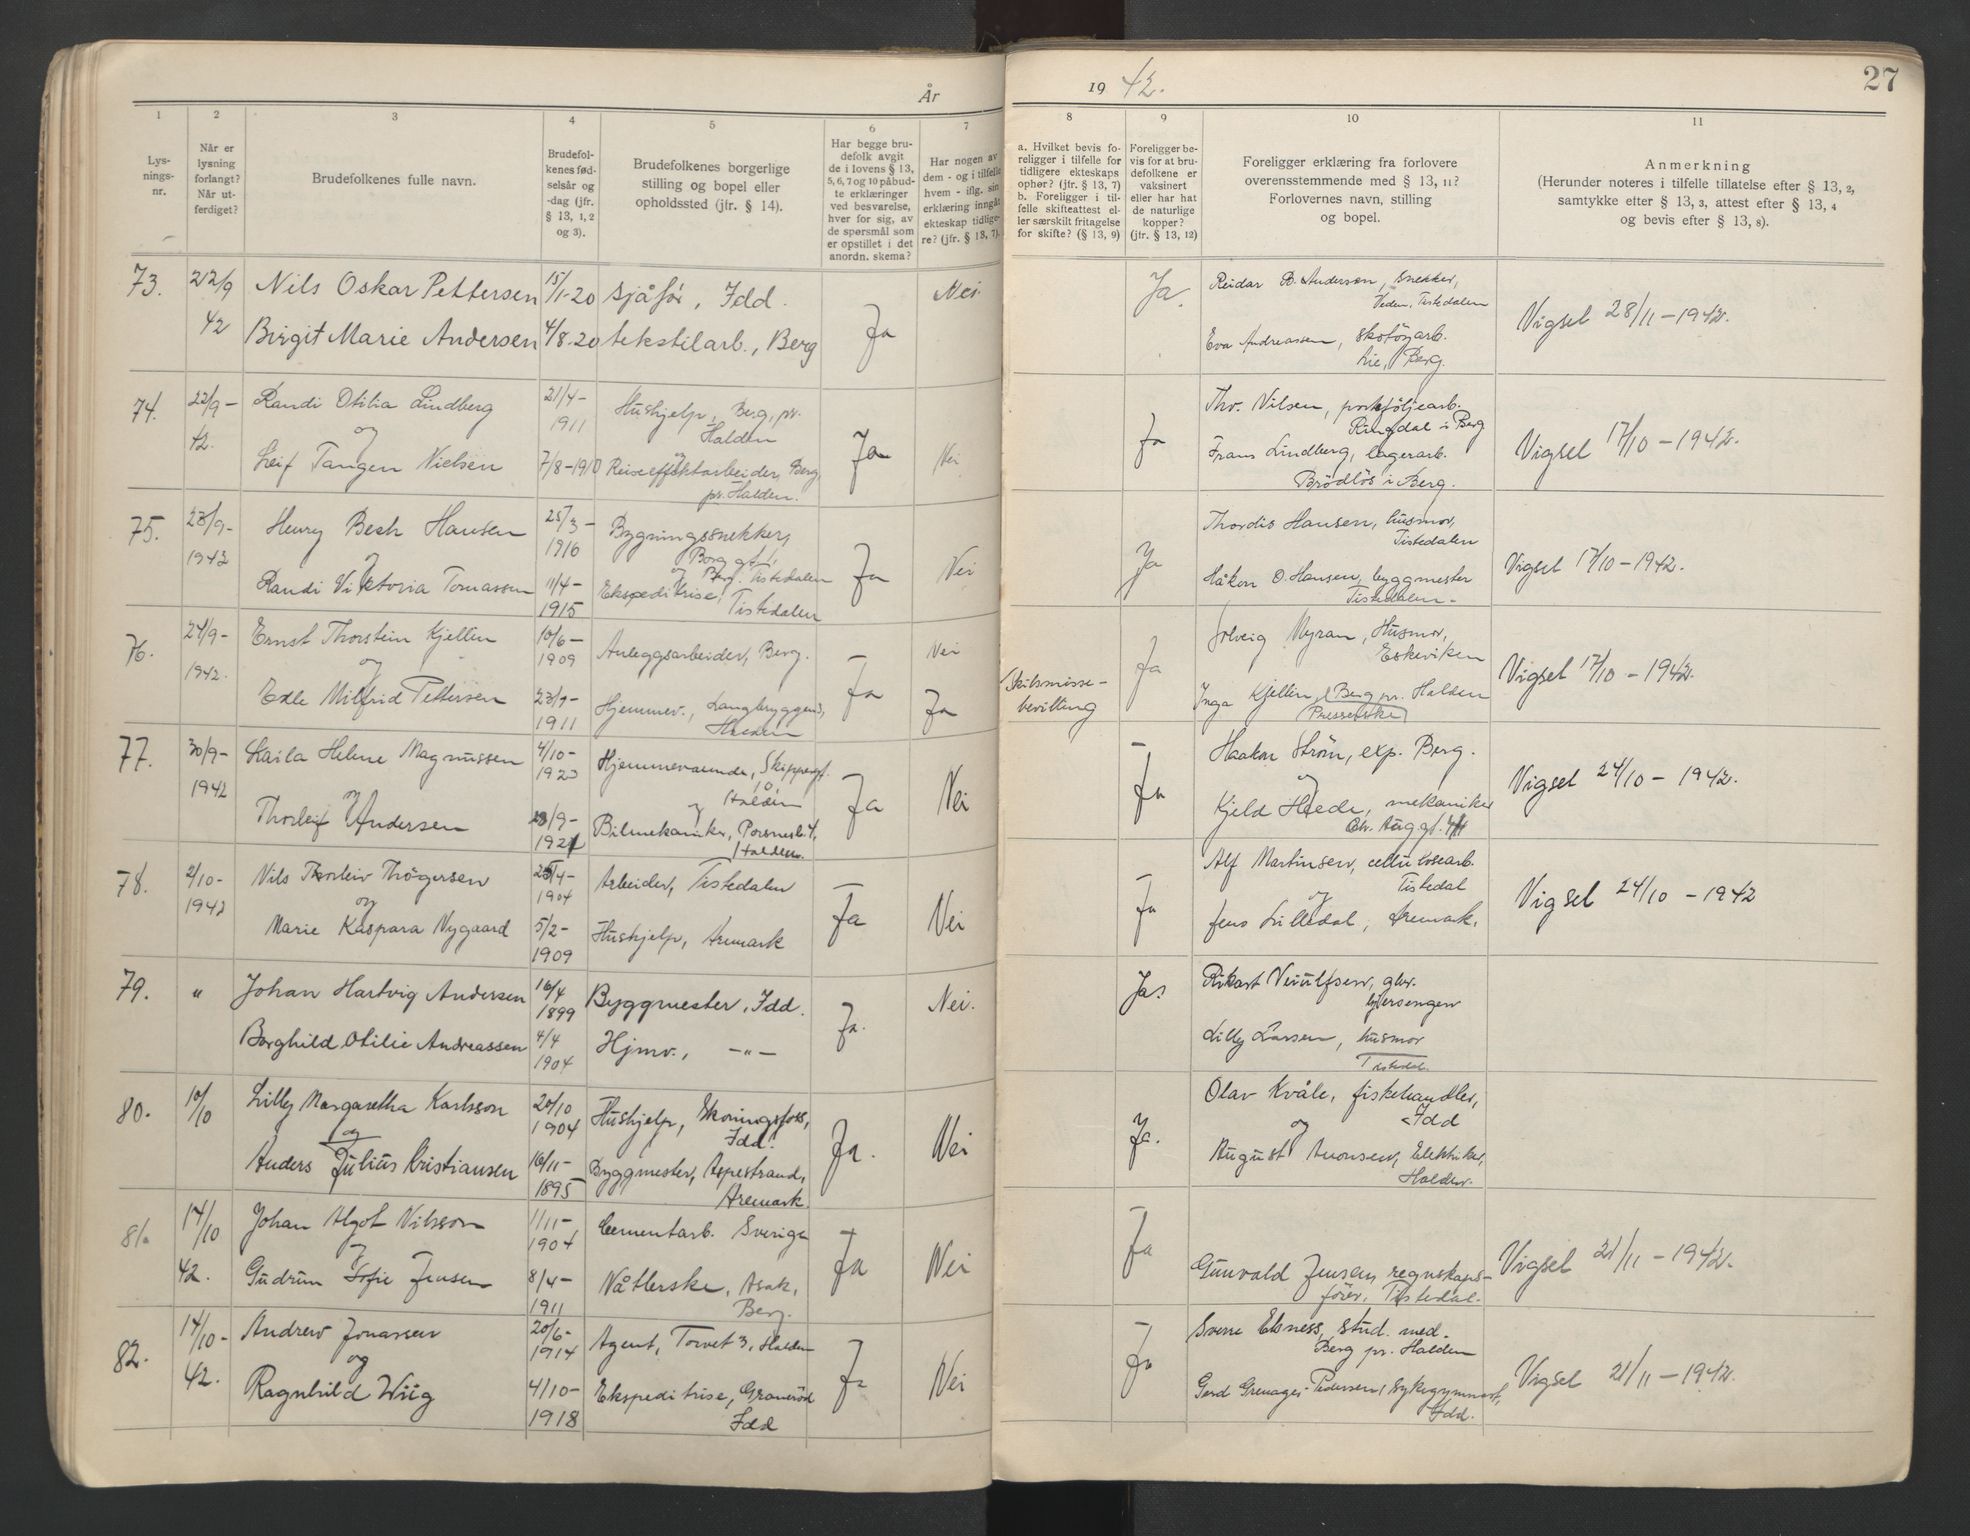 År
19 42.
27
1
2
3
4
5
6
7
8
9
10
11
Lys-
nings-
nr.
Når er
lysning
forlangt?
Når ut-
ferdiget?
Brudefolkenes fulle navn.
Brudefol-
kenes fød-
selsår og
-dag (jfr.
§ 13, 1, 2
og 3).
Brudefolkenes borgerlige
stilling og bopel eller
opholdssted (jfr. § 14).
Har begge bru-
defolk avgit
de i lovens § 13,
5, 6, 7 og 10 påbud-
te erklæringer
ved besvarelse,
hver for sig, av
de spørsmål som
er opstillet i det
anordn. skema?
Har nogen av
dem - og i tilfelle
hvem - iflg. sin
erklæring inngåt
ekteskap tidlige-
re? (jfr. § 13, 7).
a. Hvilket bevis fo-
religger i tilfelle for
tidligere ekteskaps
ophør? (jfr. § 13, 7)
b. Foreligger i til-
felle skifteattest el-
ler særskilt fritagelse
for skifte? (§ 13, 9)
Foreligger be-
vis for at bru-
defolkene er
vaksinert
eller har hat
de naturlige
kopper?
(jfr. § 13, 12)
Foreligger erklæring fra forlovere
overensstemmende med § 13, 11?
Forlovernes navn, stilling
og bopel.
Anmerkning
(Herunder noteres i tilfelle tillatelse efter § 13, 2,
samtykke efter § 13, 3, attest efter § 13, 4
og bevis efter § 13, 8).
73. 22/9 Nils Oskar Pettersen 15/1-20 sjåför, Idd. Nei. Ja. Reidar B. Andersen, snekker,
Veden, Tistedalen
42 Birgit Marie Andersen 4/8-20 tekstilarb., Berg Ja Eva Andreassen, skotöyarb.
Lie, Berg.
Vigsel 28/11-1942.
74. 22/9- Randi Otilia Lindberg 21/4- Hushjelp, Berg, pr.
1911 Halden
og
42. Leif Tangen Nielsen 7/8-1910 Reiseeffektarbeider, Berg,
pr. Halden.
Ja Nei Ja Thv. Nilsen, porteføljearb.
Ringdal i Berg
Frans Lindberg, lagerarb.
Brödlös i Berg.
Vigsel 17/10-1942.
75. 23/9- Henry Bech Hansen 25/3- Bygningssnekker,
1942 og 1916
Berg, Tistedalen
Randi Viktoria Tomassen 11/4- Ekspeditrise,
1915 Tistedalen
Ja Nei Ja Thordis Hansen, husmor,
Tistedalen
Håkon O. Hansen, byggmester
Tistedalen-
Vigsel 17/10-1942.
76. 24/9- Ernst Thorstein Kjellin 10/6- Anleggsarbeider, Berg. Nei
1942. og 1909
Edle Milfrid Pettersen 23/9- Hjemmev., Langbryggen 3, Ja Ja
1911 Halden
Skilsmisse-
bevilling
Ja Solveig Myran, Husmor,
Eskeviken
Inga Kjellin, Berg pr. Halden
Presserske
Vigsel 17/10-1942.
77. 30/9- Laila Helene Magnussen 4/10- Hjemmeværende, Skippergt.
1942 og 1923 10 Halden
Thorleif Andersen 23/9- Bilmekaniker, Porsnesb. 4,
1921 Halden.
Ja Nei Ja Haakon Ström, exp. Berg.
og
Kjeld Heede, mekaniker
Chr. Aug.gt. 44
Vigsel 24/10-1942.
78. 2/10- Nils Thorleiv Thögersen 25/4- Arbeider, Tistedalen
1942 og 1904
Marie Kaspara Nygaard 5/2- Hushjelp, Aremark
1909
Ja Nei Ja Alf Martinsen, cellulosearb.
Tistedal
og
Jens Lilledal, Aremark.
Vigsel 24/10-1942
79. " Johan Hartvig Andersen 16/4 Byggmester, Idd. Nei.
1899
Borghild Otilie Andreassen 4/4 Hjmv., -"- Ja.
1904
Ja. Rikart Neuulfsen, gbr.
Lilly Larsen, husmor
Tistedal.
80. 10/10 Lilly Margaretha Karlsson 20/10 Hushjelp, Skoningsfoss,
og 1904 Idd.
Anders Julius Kristiansen 16/11- Byggmester, Aspestrand,
1895 Aremark.
Ja. Nei Ja. Olav Kvåle, fiskehandler,
Idd
og
August Aronsen, Elektriker,
Halden.
81. 14/10 Johan Algot Nilsson 1/11- Cementarb. Sverige
og 1904
42. Gudrun Sofie Jensen 8/4- Nåtlerske, Asak,
1911 Berg.
Ja Nei Ja Gunvald Jensen, regnskaps-
förer, Tistedal.
Vigsel 21/11-1942.
82. 14/10- Andrew Jonassen 20/6- Agent, Torvet 3, Halden
og 1914
42. Ragnhild Wiig 4/10- Ekspeditrise, Graneröd
1918 Idd
Ja Nei Ja Sverre Elsness, stud. med.
Berg pr. Halden
Gerd Grenager-Pedersen, sykegymnast,
Idd.
Vigsel 21/11-1942.